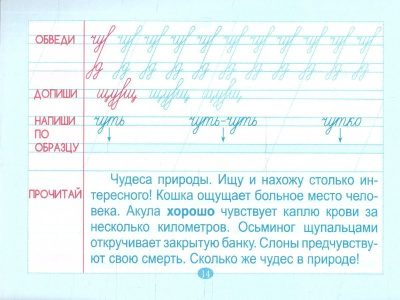 ОБВЕДИ чув чув чув чув чув чув чув чув чув чув
ДОПИШИ щущвщ щущвщ щущвщ
НАПИШИ чуть чуть-чуть чутко
ПО
ОБРАЗЦУ
ПРОЧИТАЙ Чудеса природы. Ищу и нахожу столько ин-
тересного! Кошка ощущает больное место чело-
века. Акула хорошо чувствует каплю крови за
несколько километров. Осьминог щупальцами
откручивает закрытую банку. Слоны предчувству-
ют свою смерть. Сколько же чудес в природе!
14